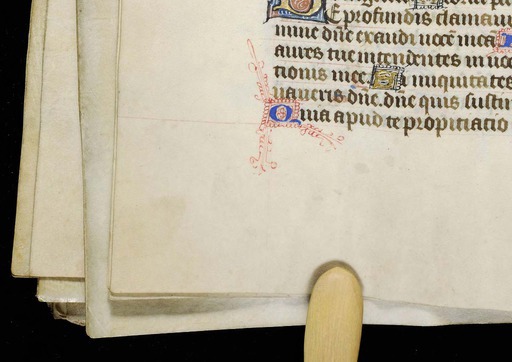 De profundis clamaui
mine dñe exaudi uocē mea
aures tue intendentes in uoc
tionis mee. Si iniquitates
uaueris dñe. dñe quis sustin
Quia apud te propitiatio